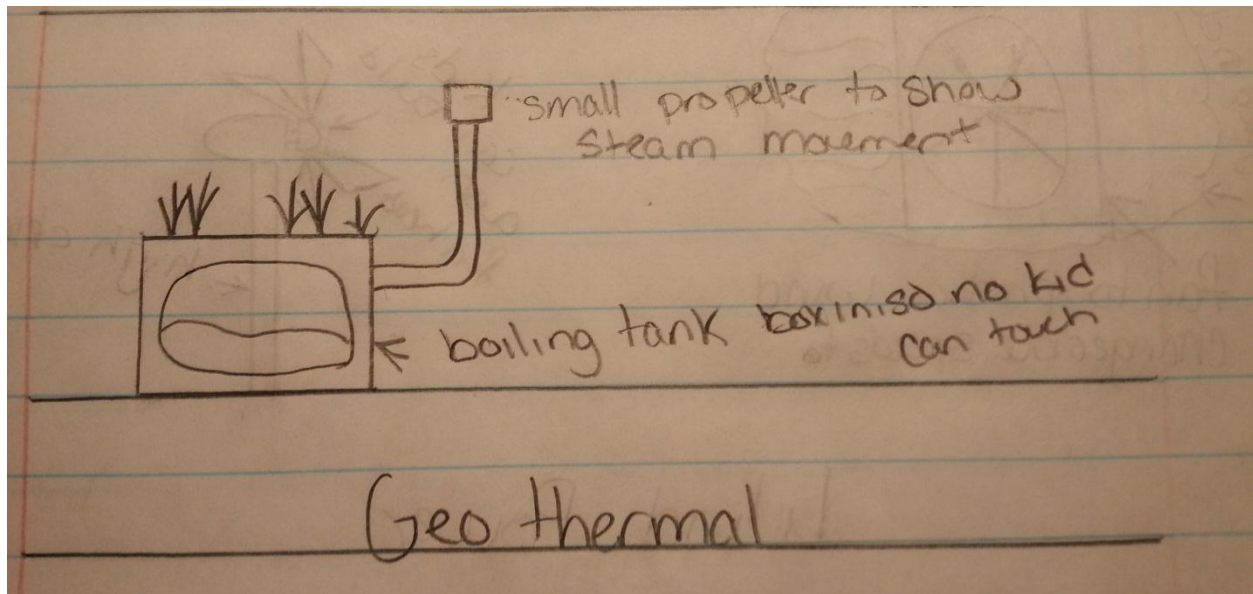 small propeller to show
steam movement
boiling tank box in so no kid
can touch
Geo thermal